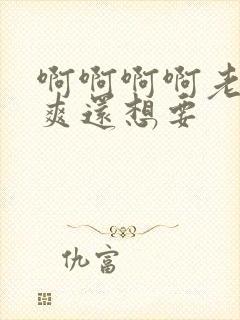 啊啊啊啊老
爽還想要
仇富